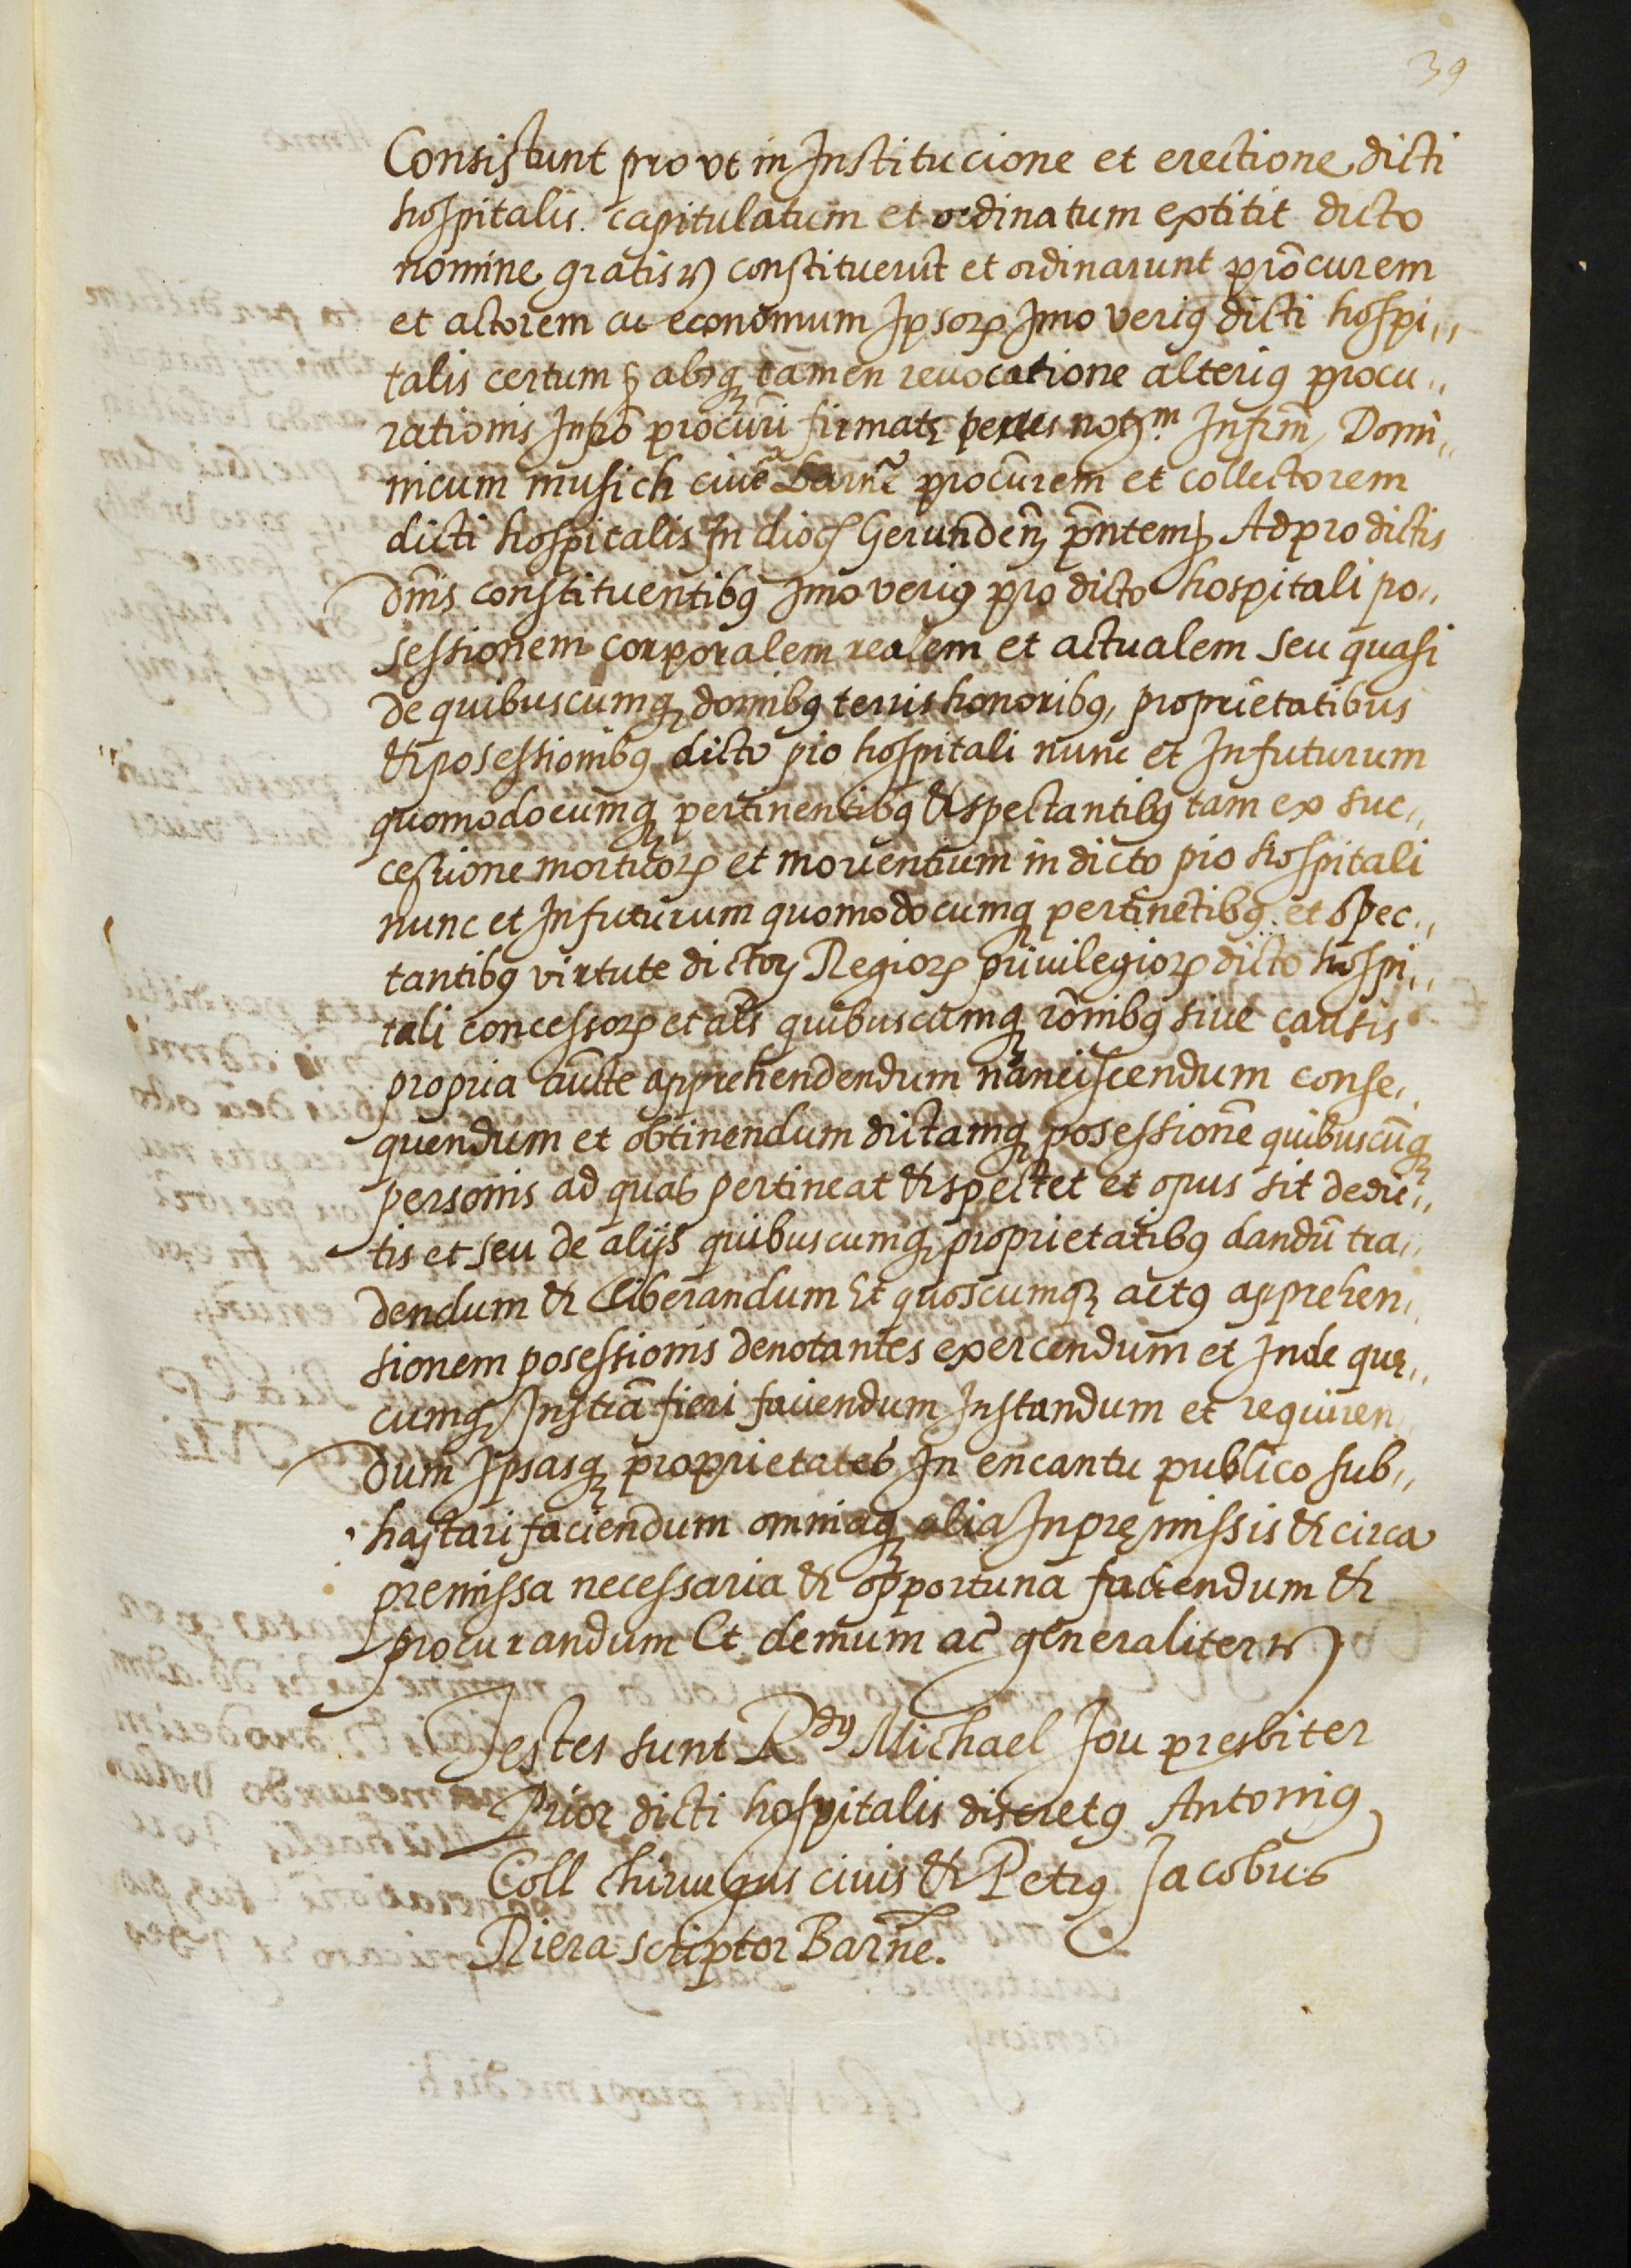 39
Consistunt pro ut in Institucione et erectione dicti
hospitalis. capitulatum et ordinatum extitit dicto
nomine gratis &c constituerūt et ordinarunt prōcurem
et actorem ac economum Ipsorꝝ Imo veriꝰ dicti hospi,,
talis certum &c absqꝫ tamen reuocatione alteriꝰ procu,,
rationis procūri firmatę penes Infrm̄ Domi,,
nicum musich ciuē Barnē̄ procūrem et collectorem
dicti hospitalis In dioc̄ Gerundenꝫ pn̄tem &c Ad pro dictis
dn̄is constituentibꝰ Imo veriꝰ pro dicto hospitali po,,
sessionem corporalem realem et actualem seu quasi
de quibuscumqꝫ domibꝰ terris honoribꝰ, proprietatibus
& posessionibꝰ dicto pio hospitali nunc et In futurum
quomodocumqꝫ pertinentibꝰ & spectantibꝰ tam ex suc,,
cessione mortuorꝝ et morientium in dicto pio hospitali
nunc et In futurum quomodocumqꝫ pertinētibꝰ. et spec,,
tantibꝰ virtute dictorꝝ Regiorꝝ priuilegiorꝝ dicto hospi,,
tali concessorꝝ et al̄s quibuscumqꝫ rōnibꝰ siue causis
propria auc̄te apprehendendum nanciscendum conse,,
quendum et obtinendum dictamqꝫ posessionē quibuscūqꝫ
personis ad quas pertineat & spectet et opus sit de dic,,
tis et seu de alijs quibuscumqꝫ proprietatibꝰ dandū tra,,
dendum & Liberandum Et quoscumqꝫ actꝰ apprehen,,
sionem posessionis denotantes exercendum et Inde quę,,
cumqꝫ Instrā fieri faciendum Instandum et requiren
dum Ipsasqꝫ proprietates In encantu publico sub,,
hastari faciendum omniaqꝫ alia In pręmissis & circa
premissa necessaria & opportuna faciendum &
procurandum Et demum ac̄ generaliter &c
Testes sunt Rdꝰ Michael Jou presbiter
Prior dicti hospitalis discretꝰ Antoniꝰ
Coll chirurgus ciuis & Petrꝰ Jacobus
Riera scriptor Barn̄e.